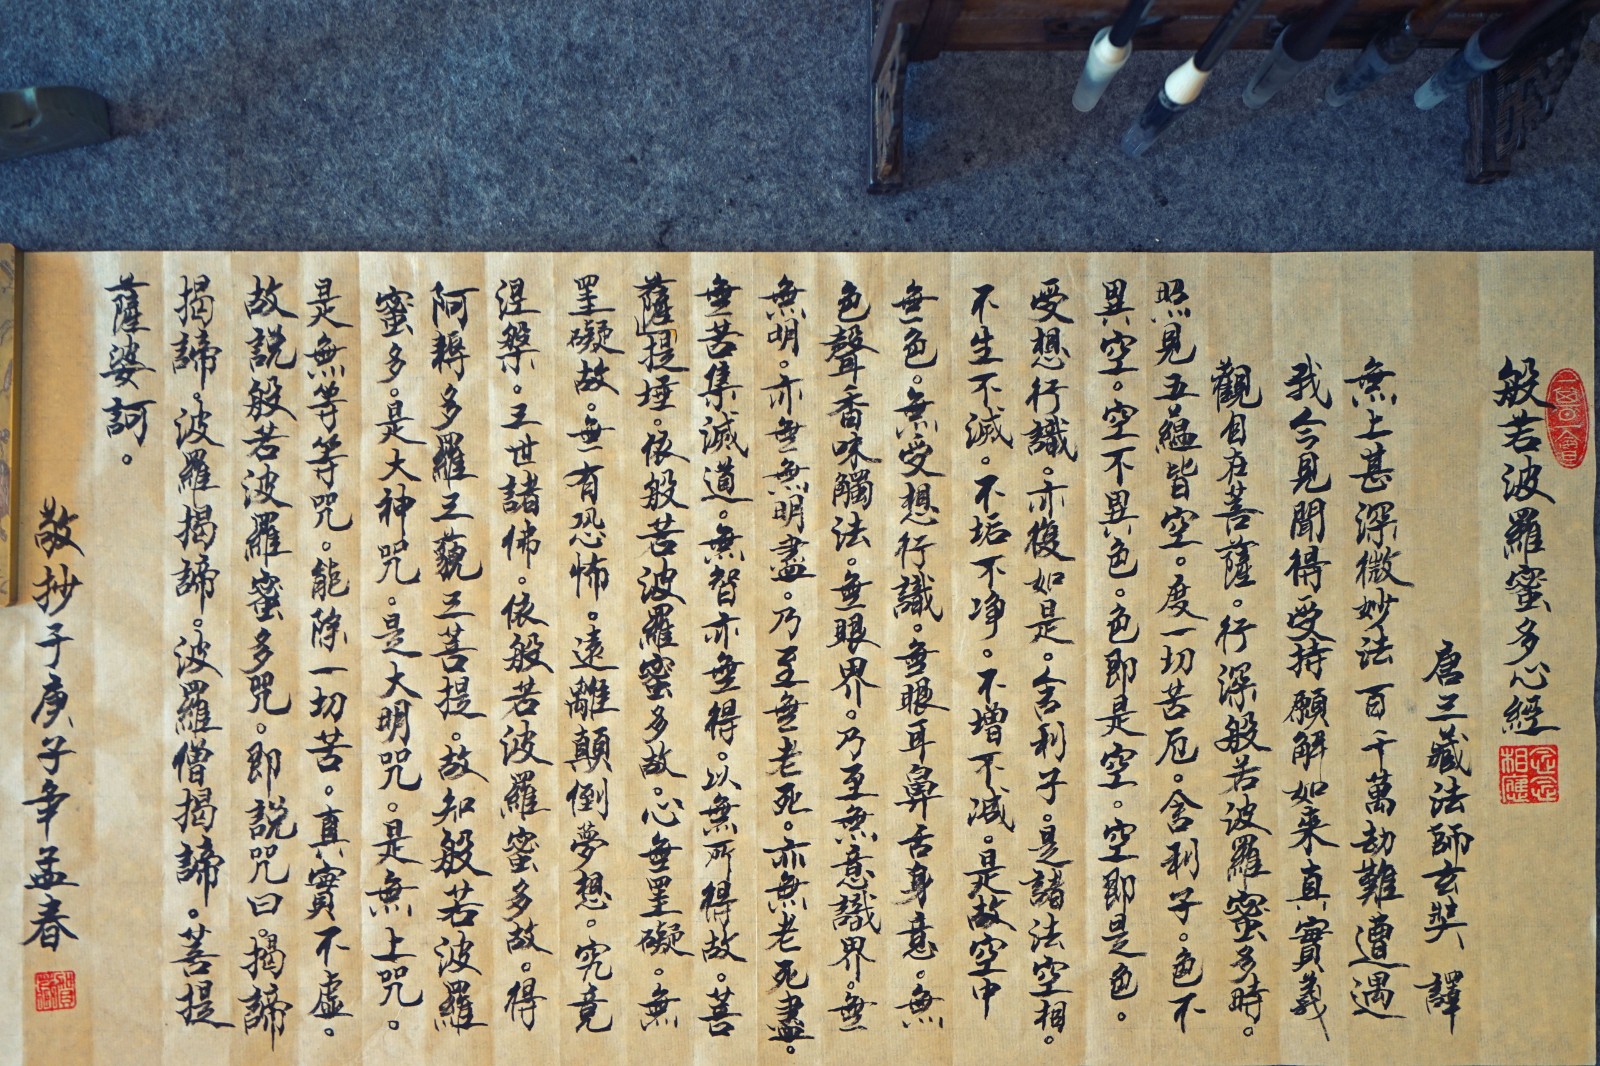 般若波羅蜜多心經
唐三藏法師玄奘 譯
無上甚深微妙法百千萬劫難遭遇
我今見聞得受持願解如來真實義
觀自在菩薩。行深般若波羅蜜多時。
照見五蘊皆空。度一切苦厄。舍利子。色不
異空。空不異色。色即是空。空即是色。
受想行識。亦復如是。舍利子。是諸法空相。
不生不滅。不垢不净。不增不减。是故空中
無色。無受想行識。無眼耳鼻舌身意。無
色聲香味觸法。無眼界。乃至無意識界。無
無明。亦無無明盡。乃至無老死。亦無老死盡。
無苦集滅道。無智亦無得。以無所得故。菩
薩提埵。依般若波羅蜜多故。心無罣礙。無
罣礙故。無有恐怖。遠離顛倒夢想。究竟
涅槃。三世諸佛。依般若波羅蜜多故。得
阿耨多羅三藐三菩提。故知般若波羅
蜜多。是大神咒。是大明咒。是無上咒。
是無等等咒。能除一切苦。真實不虛。
故說般若波羅蜜多咒。即說咒曰。揭諦
揭諦。波羅揭諦。波羅僧揭諦。菩提
薩婆訶。
敬抄于庚子年孟春
念念相應